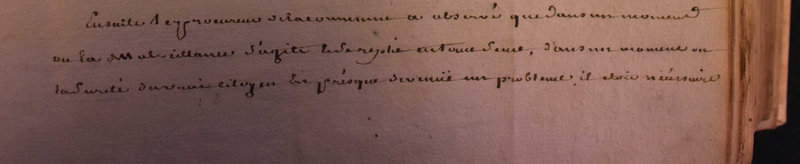 Ensuite le procureur de la commune a observé que dans un moment
ou la Malveillance s'agite et se replie en tout sens, dans un moment ou
la Sureté du vrai Citoyen Est présque devenüe un probleme, il etoit nécéssaire